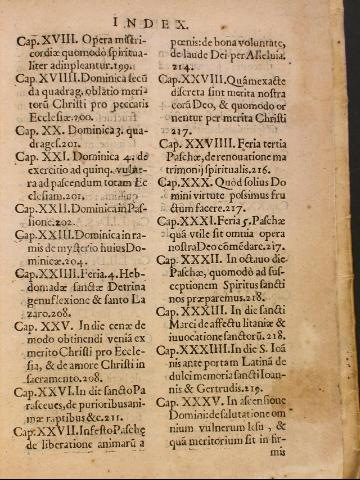 INDEX.
Cap. XVIII. Opera miseri-
cordiæ quomodò spiritua-
liter adinpleantur.199.
Cap. XVIIII. Dominica secũ
da quadrag. oblatio meri-
torũ Christi pro peccatis
Ecclesiæ.200.
Cap. XX. Dominica 3. qua-
drages.201.
Cap. XXI. Dominica 4. de
exercitio ad quinq. vulne-
ra ad pascendum totam Ec
clesiam.201.
Cap. XXII. Dominica in Pas-
sione.202.
Cap. XXIII. Dominica in ra-
mis de mysterio huius Do-
minicæ.204.
Cap. XXIIII. Feria.4. Heb-
domadæ sanctæ Detrina
genuflexione & santo La
zaro.208.
Cap. XXV. In die cenæ de
modo obtinendi veniã ex
merito Christi pro Eccle-
sia, & de amore Christi in
sacramento.208.
Cap. XXVI. In die sancto Pa
rasceues, de purioribus ani-
mæ raptibus &c.211.
Cap. XXVII. In festo Paschę
de liberatione animarũ a
pœnis: de bona voluntate,
de laude Dei per Alleluia.
214.
Cap. XXVIII. Quàm exacte
discreta sint merita nostra
corã Deo, & quomodo or
nentur per merita Christi
217.
Cap. XXVIIII. Feria tertia
Paschæ, de renouatione ma
trimonij spiritualis.216.
Cap. XXX. Quòd solius Do
mini virtute possimus fru
ctum facere.217.
Cap. XXXI. Feria 5. Paschæ
quã vtile sit omnia opera
nostra Deo cõmẽdare.217.
Cap. XXXII. In octauo die
Paschæ, quomodò ad sus-
ceptionem Spiritus sancti
nos præparemus.218.
Cap. XXXIII. In die sancti
Marci de affectu litaniæ &
inuocatione sanctorũ.218.
Cap. XXXIIII. In die S. Ioã
nis ante portam Latinã de
dulci memoria sancti Ioan-
nis & Gertrudis.219.
Cap. XXXV. In ascensione
Domini: de salutatione om
nium vulnerum Iesu, &
quã meritorium sit in fir-
mis